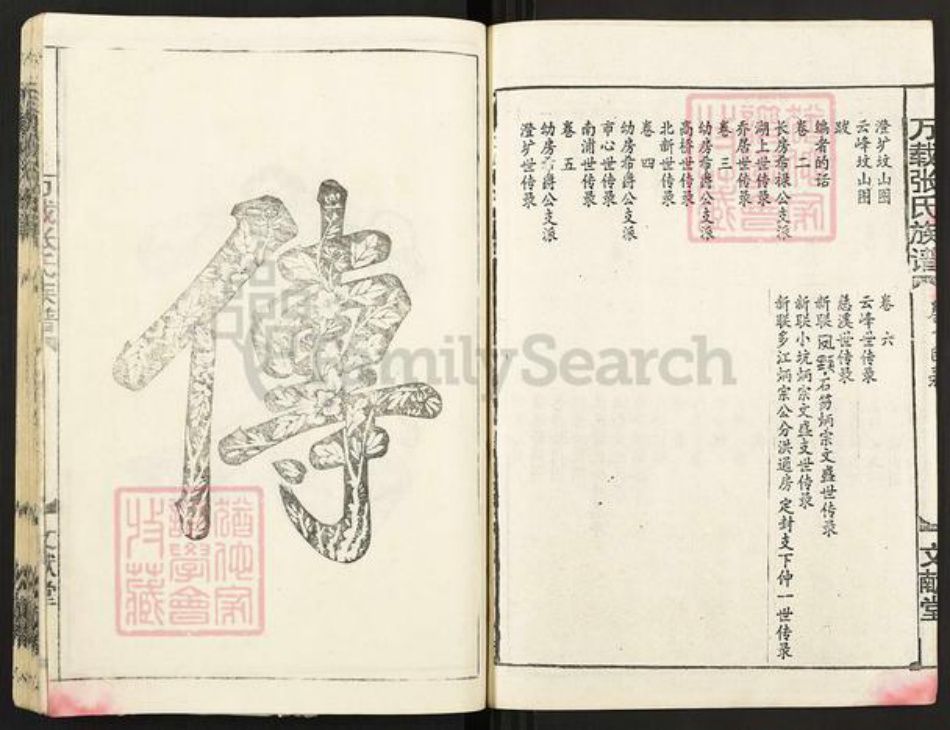 万载张氏族谱
文献堂
澄圹坟山图
云峰坟山图
跋
编者的话
卷二
长房希禄公支派
湖上世传录
乔居世传录
卷三
幼房希爵公支派
高桥世传录
北新世传录
卷四
幼房希爵公支派
市心世传录
南浦世传录
卷五
幼房希爵公支派
澄圹世传录
卷六
云峰世传录
慈溪世传录
新联凤颈石笏炳宗文盛世传录
新联小坑炳宗文盛支世传录
新联多江炳宗公分洪通房定封支下仲一世传录
傳
FamilySearch